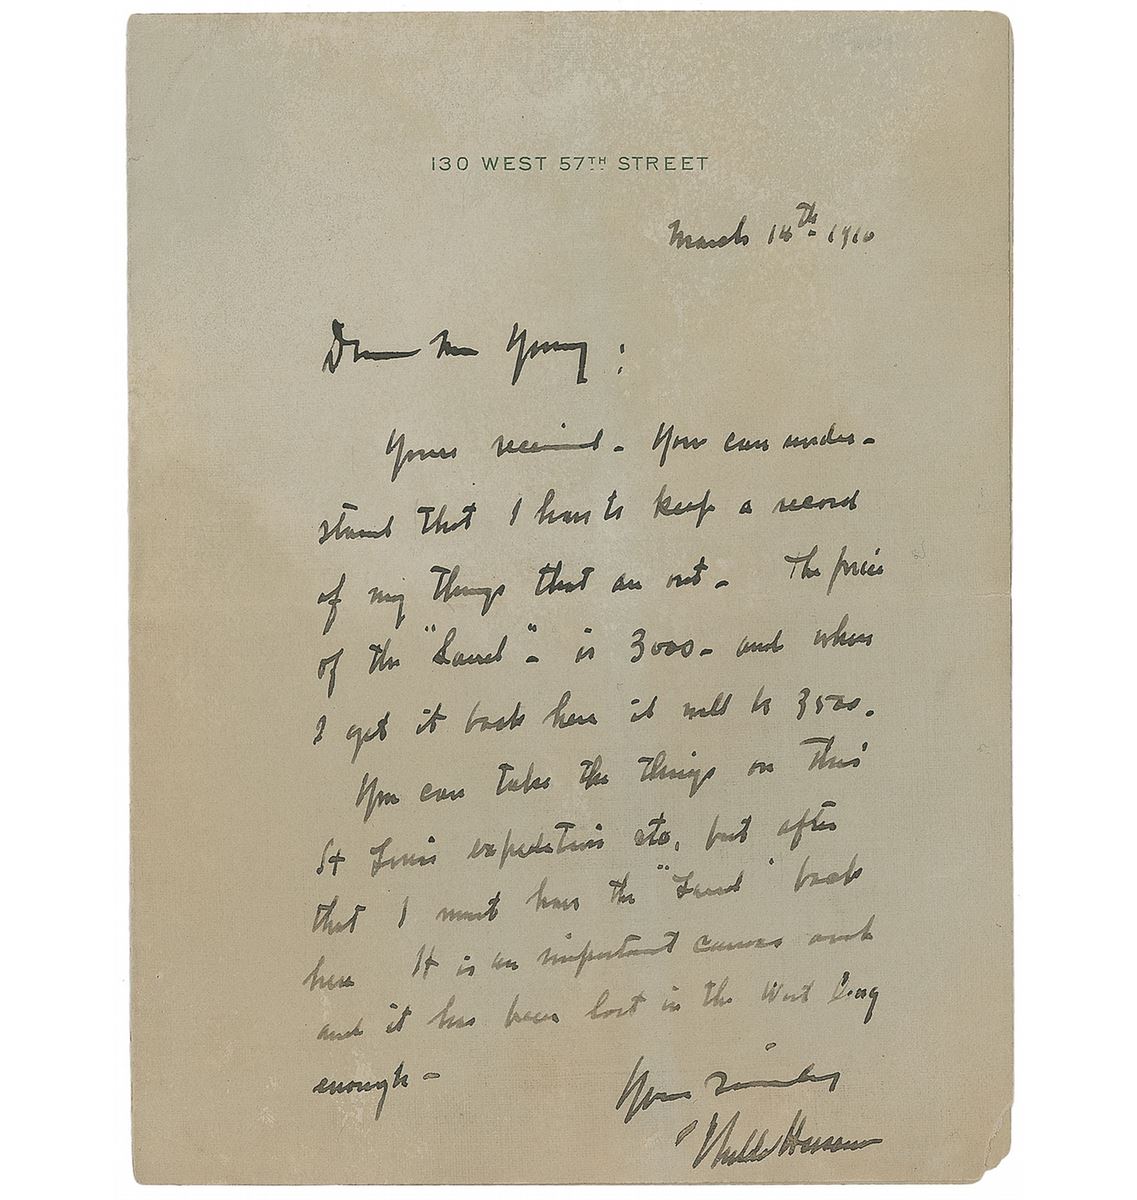 130 WEST 57TH STREET
March 14th 1910
Dear Mr Young:
Yours received - You can under-
stand that I have to keep a record
of my things that are out - The price
of the " " - is 3000 - and when
I get it back here it will be 3500.
You can take the things on this
St Louis expedition etc, but after
that I must have the " " back
here It is an important canvas and
and it has been lost in the West long
enough -
Yours Sincerely
Childe Hassam